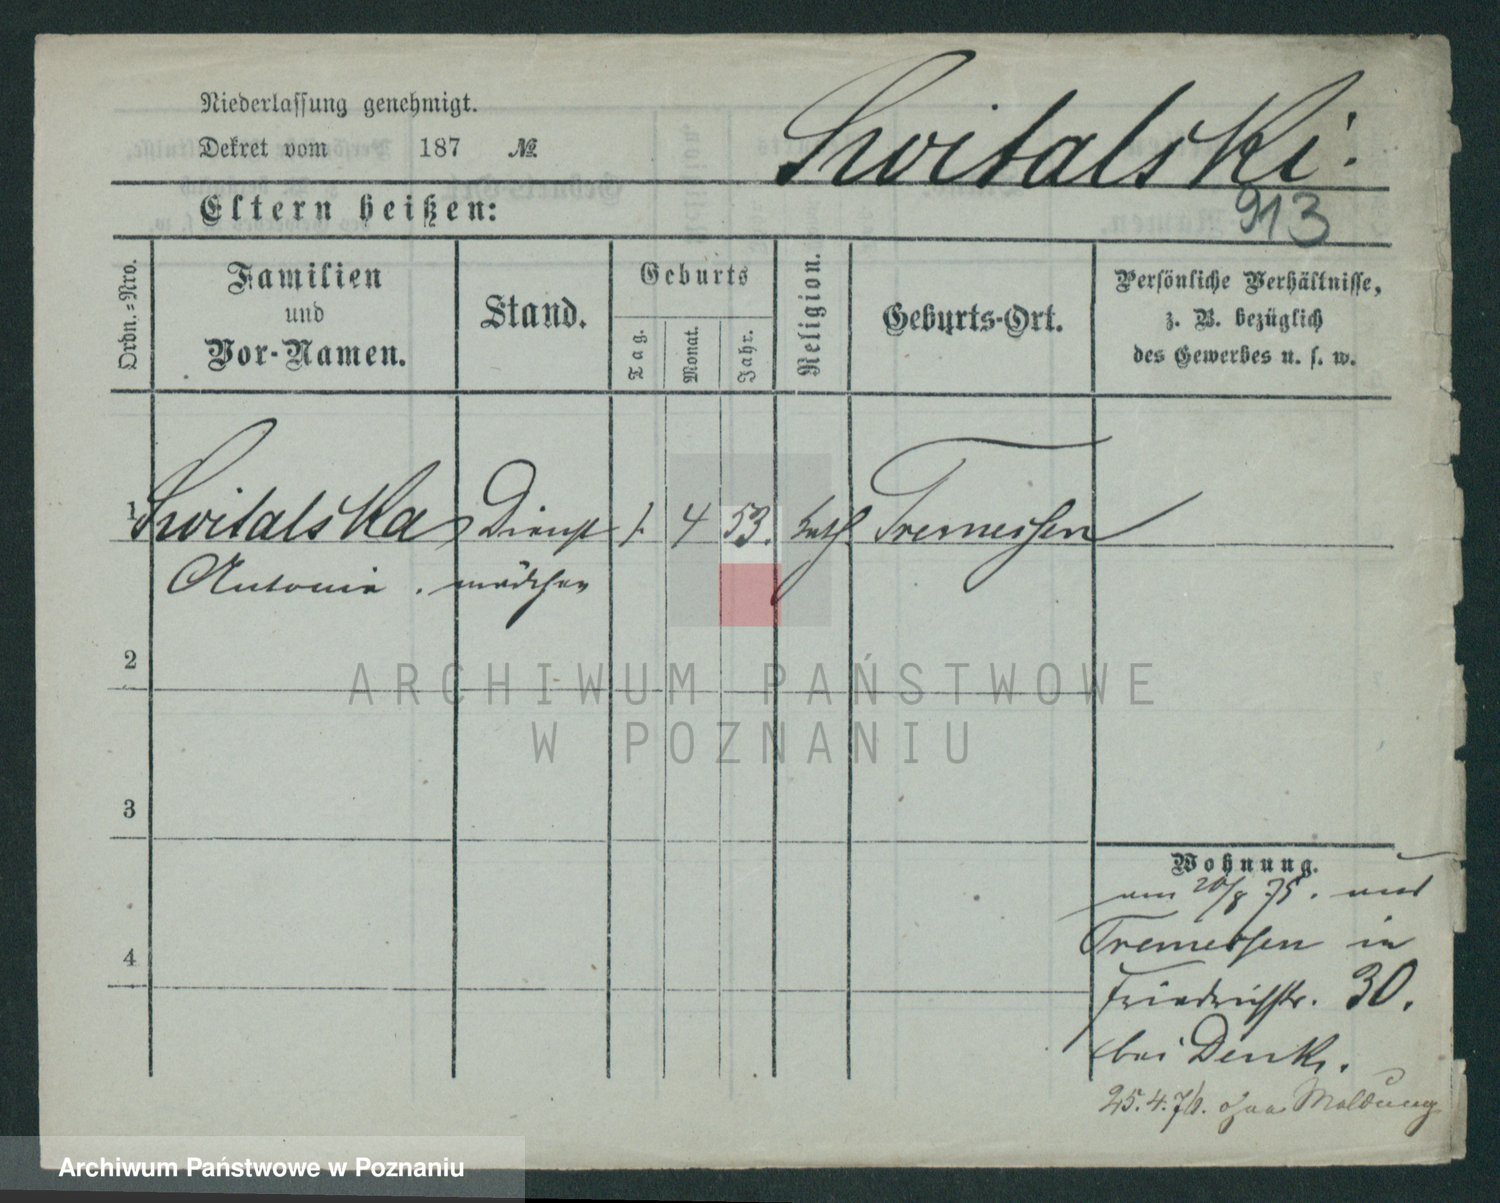 Niederlassung genehmigt.
Dekret vom 187 №
Switalski.
913
Eltern heißen:
Ordn.-Nro.
Familien
und
Vor-Namen.
Stand.
Geburts
Tag.
Monat.
Jahr.
Religion.
Geburts-Ort.
Persönliche Verhältnisse,
z. B. bezüglich
des Gewerbes u. s. w.
1 Switalska Dienst 1. 4 53. kath. Tremessen
Antonie. mädchen
2
ARCHIWUM PAŃSTWOWE
W POZNANIU
3
Wohnung.
am 20/8 75. aus
Tremessen in
4
Friedrichstr. 30.
bei Denk.
25.4.76. ohne Meldung
Archiwum Państwowe w Poznaniu